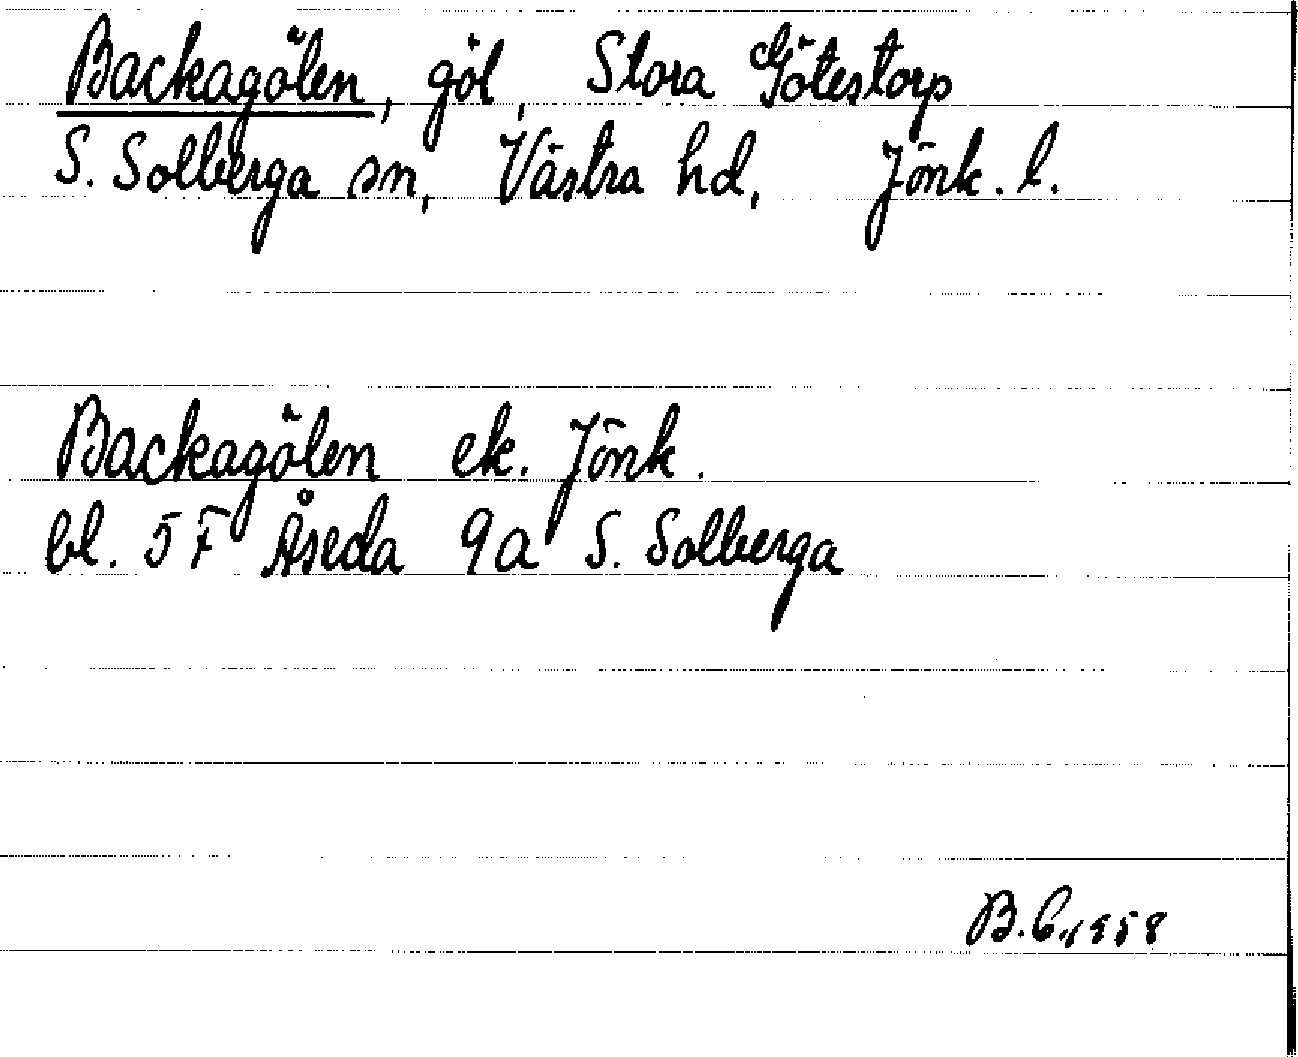 Backagölen, göl, Stora Götestorp
S. Solberga sn, Västra hd, Jönk. l.
Backagölen ek. Jönk.
bl. 5F Åseda 9a S. Solberga
B.C. 1958